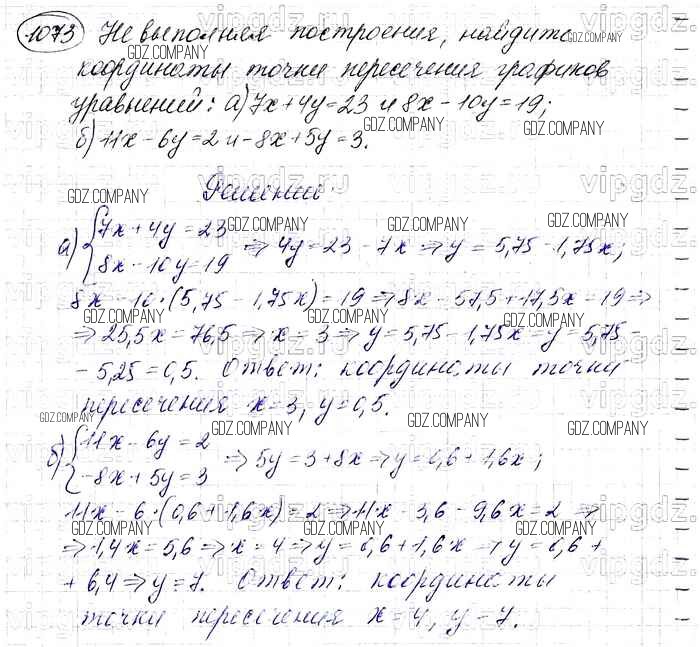 1073 Не выполняя построения, найдите
координаты точки пересечения графиков
уравнений: а) 7x+4y=23 и 8x-10y=19;
б) 11x-6y=2 и -8x+5y=3.
Решение:
а) {7x+4y=23
8x-10y=19 ⇒ 4y=23-7x ⇒ y=5,75-1,75x;
8x-10·(5,75-1,75x)=19 ⇒ 8x-57,5+17,5x=19 ⇒
⇒ 25,5x=76,5 ⇒ x=3 ⇒ y=5,75-1,75x=y=5,75-
-5,25=0,5. Ответ: координаты точки
пересечения x=3, y=0,5.
б) {11x-6y=2
-8x+5y=3 ⇒ 5y=3+8x ⇒ y=0,6+1,6x;
11x-6·(0,6+1,6x)=2 ⇒ 11x-3,6-9,6x=2 ⇒
⇒ 1,4x=5,6 ⇒ x=4 ⇒ y=0,6+1,6·x ⇒ y=0,6+
+6,4 ⇒ y=7. Ответ: координаты
точки пересечения x=4, y=7.